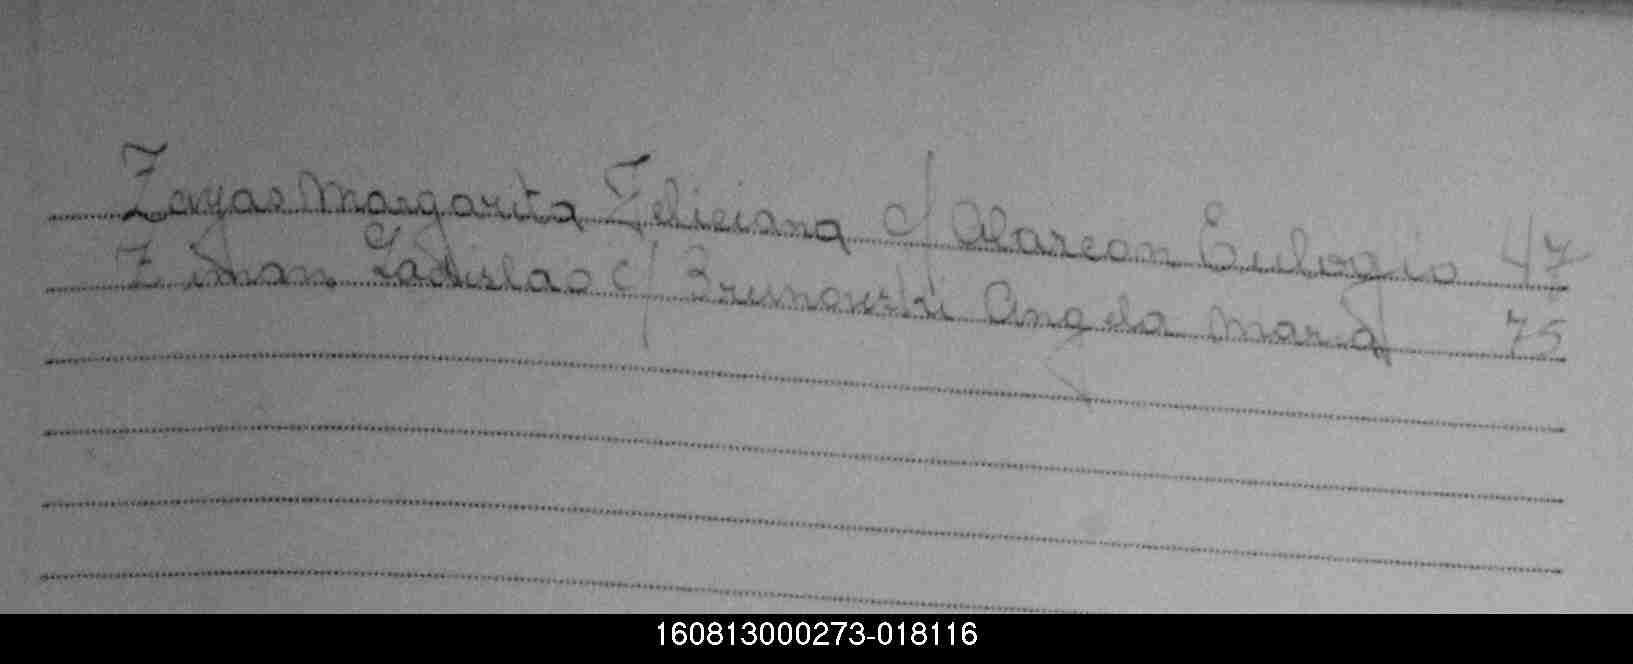 Zayas Margarita Feliciana c/ Alarcon Eulogio 47
Ziman Ladislao c/ Brunowski Angela Maria 75
160813000273-018116